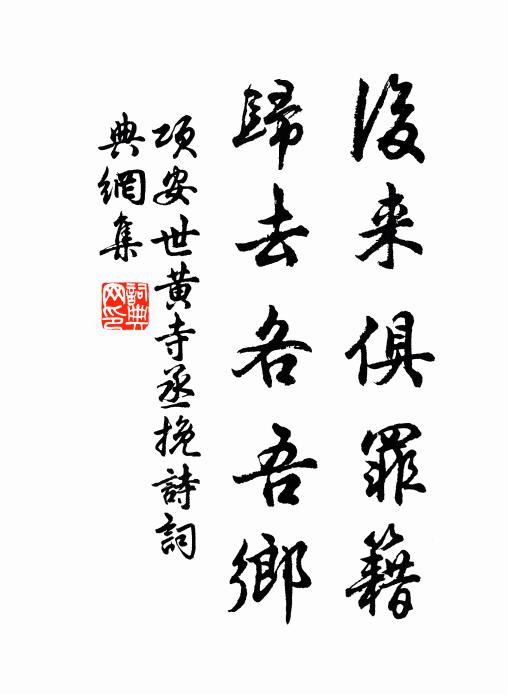 後来俱罪籍
歸去各吾鄉
项安世黄寺丞挽詩詞
典網集
詞典网印